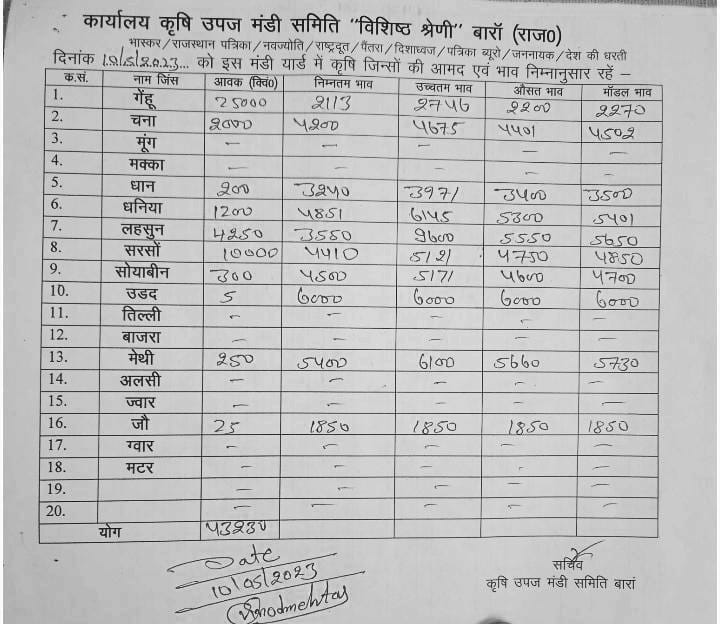 कार्यालय कृषि उपज मंडी समिति "विशिष्ठ श्रेणी" बारॉ (राज0)
भास्कर/राजस्थान पत्रिका/नवज्योति/राष्ट्रदूत/पैंतरा/दिशाध्वज/पत्रिका ब्यूरो/जननायक/देश की धरती
दिनांक 10/5/2023... को इस मंडी यार्ड में कृषि जिन्सों की आमद एवं भाव निम्नानुसार रहें –
क.सं. नाम जिंस आवक (क्विं0) निम्नतम भाव उच्चतम भाव औसत भाव मॉडल भाव
1. गेंहू 25000 2113 2746 2200 2270
2. चना 2000 4200 4675 4401 4502
3. मूंग – – – – –
4. मक्का – – – – –
5. धान 200 3240 3971 3400 3500
6. धनिया 1200 4851 6145 5300 5401
7. लहसुन 4250 3550 9600 5550 5650
8. सरसों 10000 4410 5121 4750 4850
9. सोयाबीन 300 4500 5171 4600 4700
10. उडद 5 6000 6000 6000 6000
11. तिल्ली – – – – –
12. बाजरा – – – – –
13. मेथी 250 5400 6100 5660 5730
14. अलसी – – – – –
15. ज्वार – – – – –
16. जौ 25 1850 1850 1850 1850
17. ग्वार – – – – –
18. मटर – – – – –
19. – – – – –
20. – – – – –
योग 43230
Date
10/05/2023
सचिव
कृषि उपज मंडी समिति बारां